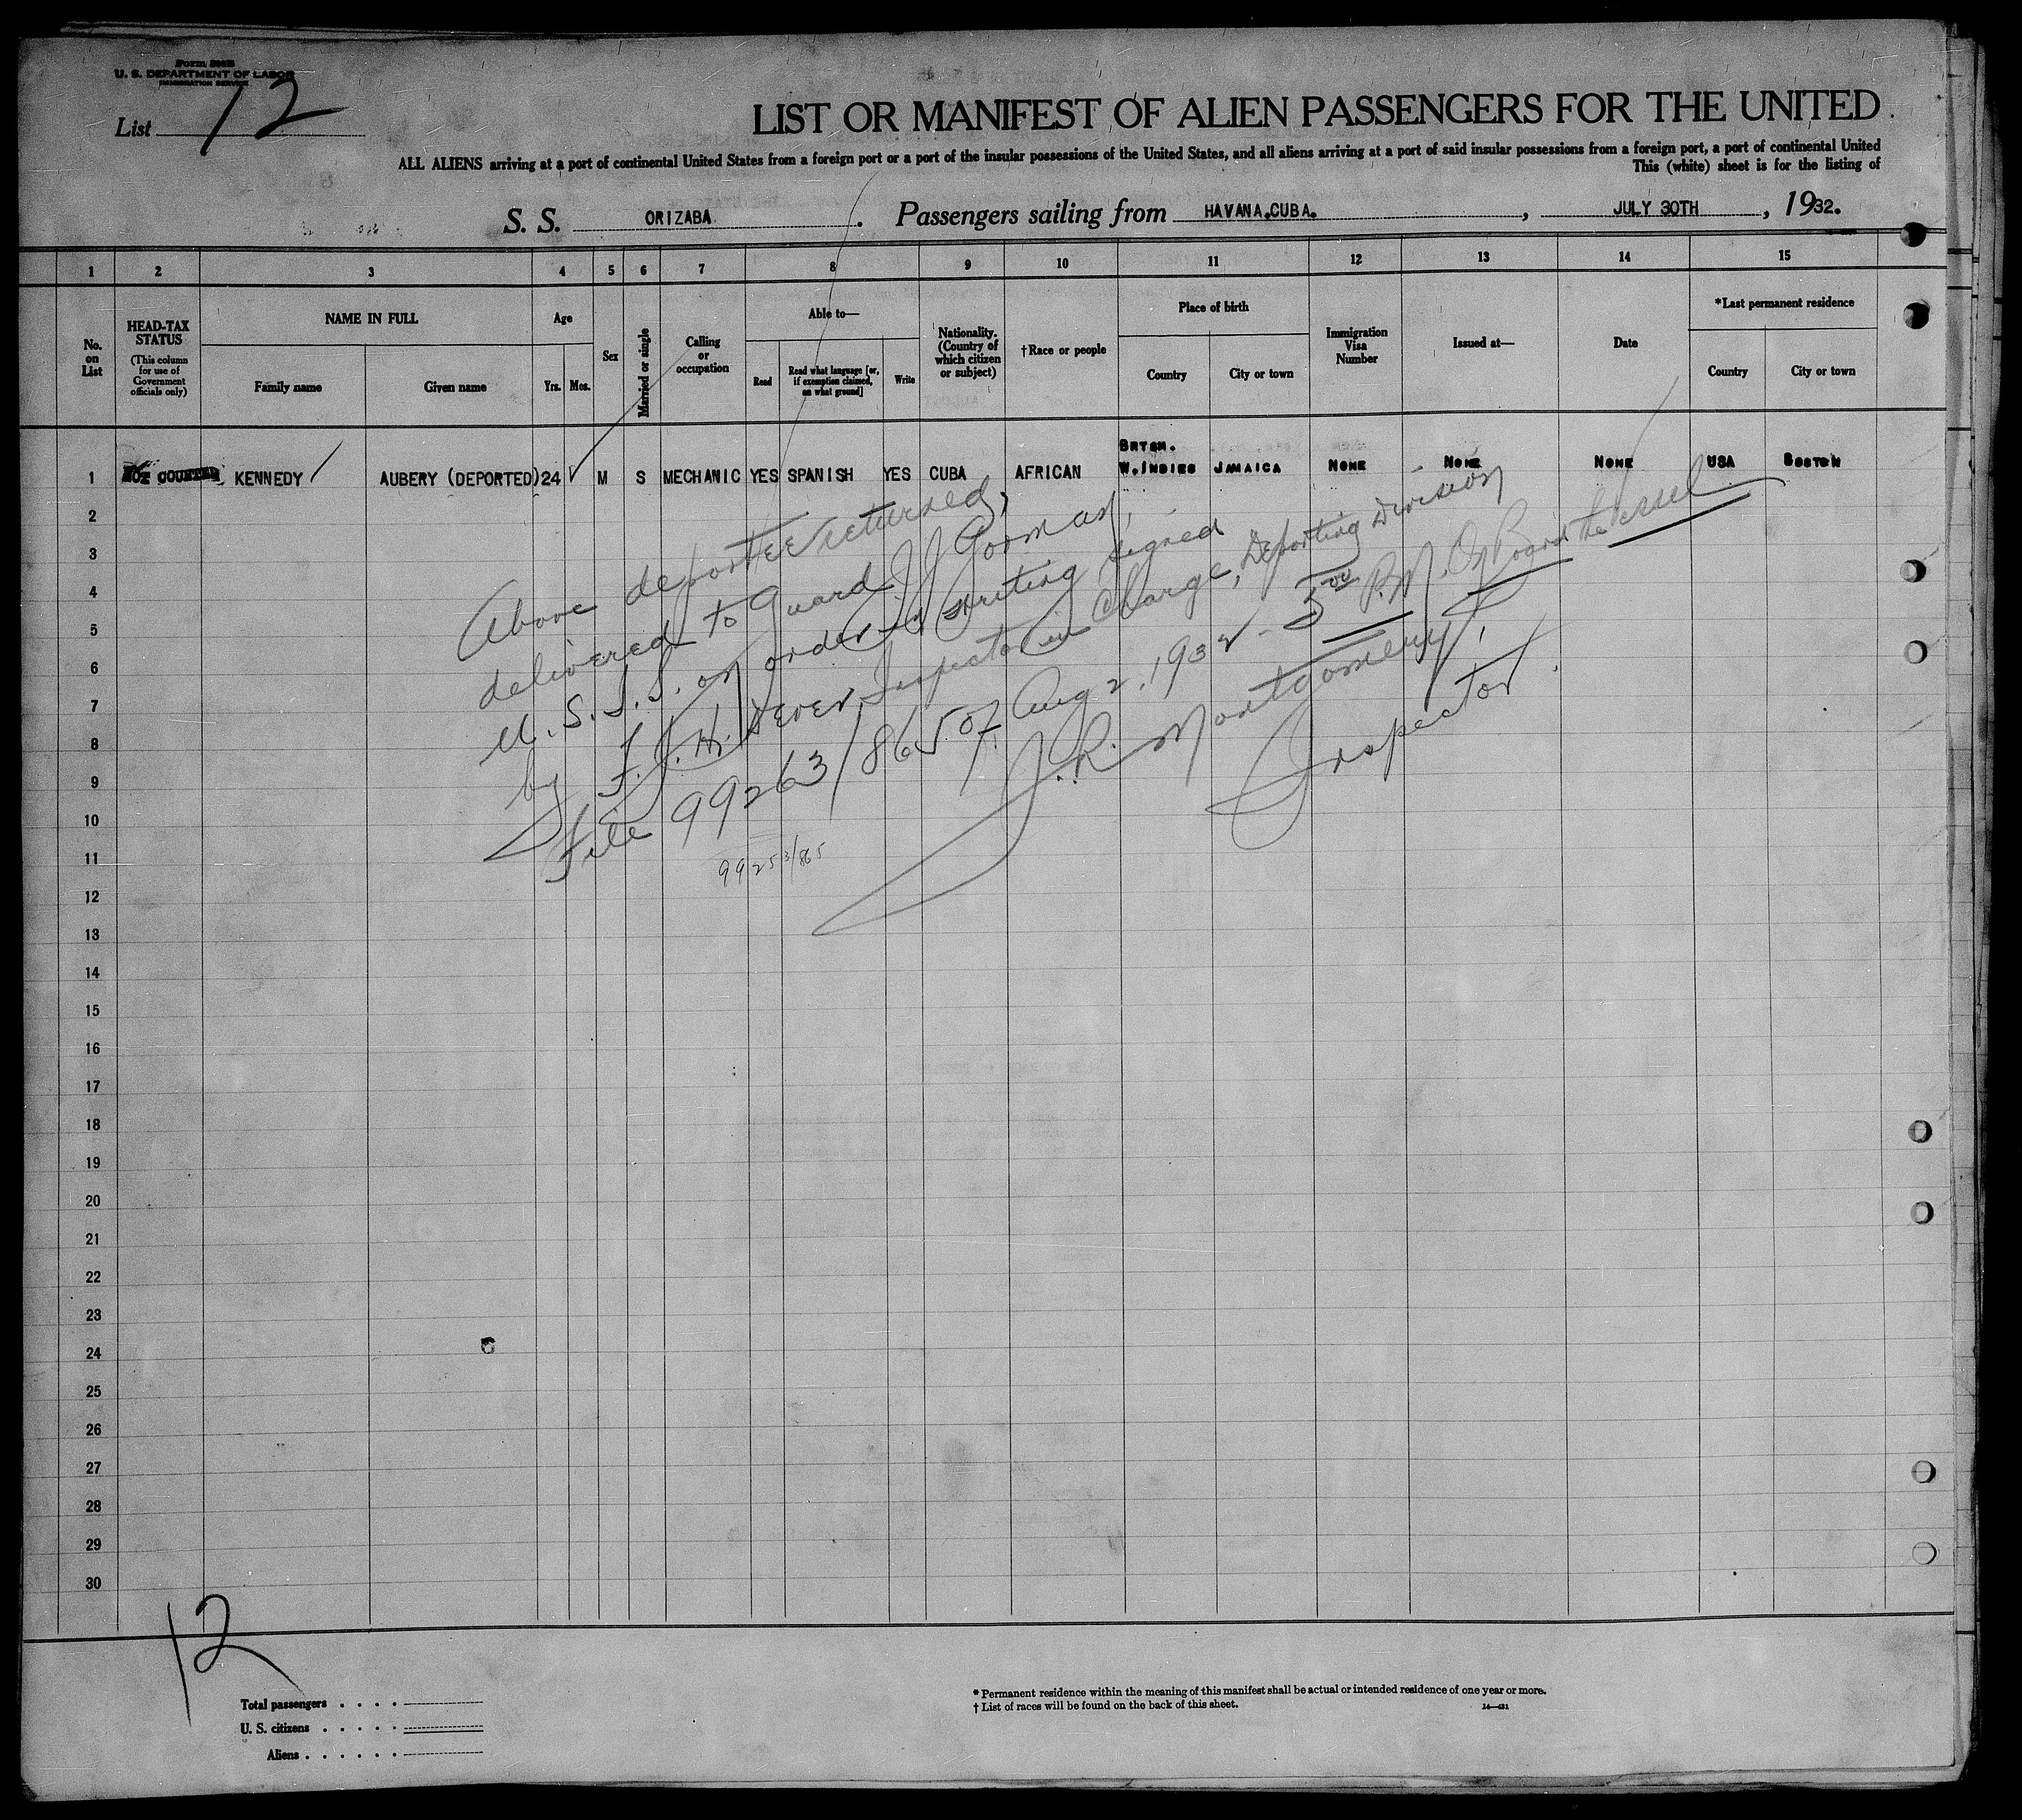 Form 500B
U. S. DEPARTMENT OF LABOR
IMMIGRATION SERVICE
List 12
LIST OR MANIFEST OF ALIEN PASSENGERS FOR THE UNITED
ALL ALIENS arriving at a port of continental United States from a foreign port or a port of the insular possessions of the United States, and all aliens arriving at a port of said insular possessions from a foreign port, a port of continental United
This (white) sheet is for the listing of
S. S. ORIZABA. Passengers sailing from HAVANA.CUBA. , JULY 30TH , 1932.
1 2 3 4 5 6 7 8 9 10 11 12 13 14 15
No. on List
HEAD-TAX STATUS
(This column for use of Government officials only)
NAME IN FULL
Family name
Given name
Age
Yrs. Mos.
Sex
Married or single
Calling or occupation
Able to—
Read
Read what language [or, if exemption claimed, on what ground]
Write
Nationality. (Country of which citizen or subject)
†Race or people
Place of birth
Country
City or town
Immigration Visa Number
Issued at—
Date
*Last permanent residence
Country
City or town
1 NOT COUNTED KENNEDY AUBERY (DEPORTED) 24 M S MECHANIC YES SPANISH YES CUBA AFRICAN BRTSH. W.INDIES JAMAICA NONE NONE NONE USA BOSTON
2
3
4
5
6
7
8
9
10
11
12
13
14
15
16
17
18
19
20
21
22
23
24
25
26
27
28
29
30
Above deportee returned,
delivered to Guard J. J. Gorman,
U. S. I. S. on order in writing signed
by F. J. H. Dever, Inspector in Charge, Deporting Division
File 99263/865 of Aug 2, 1932 - 3 00 P.M. On Board the Vessel
J. R. Montgomery,
Inspector.
99253/865
12
Total passengers . . . .
U. S. citizens . . . . .
Aliens . . . . . .
* Permanent residence within the meaning of this manifest shall be actual or intended residence of one year or more.
† List of races will be found on the back of this sheet.